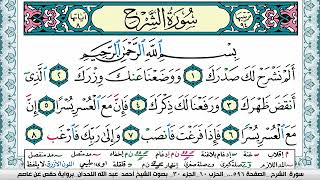 سُورَةُ الشَّرْحِ
بِسْمِ اللَّهِ الرَّحْمَٰنِ الرَّحِيمِ
أَلَمْ نَشْرَحْ لَكَ صَدْرَكَ ١ وَوَضَعْنَا عَنكَ وِزْرَكَ ٢ الَّذِي
أَنقَضَ ظَهْرَكَ ٣ وَرَفَعْنَا لَكَ ذِكْرَكَ ٤ فَإِنَّ مَعَ الْعُسْرِ يُسْرًا ٥ إِنَّ
مَعَ الْعُسْرِ يُسْرًا ٦ فَإِذَا فَرَغْتَ فَانصَبْ ٧ وَإِلَىٰ رَبِّكَ فَارْغَب ٨
سورة الشرح الصفحة ٥٩٦ الحزب ٦٠ الجزء ٣٠ بصوت الشيخ أحمد عبد الله برواية حفص عن عاصم